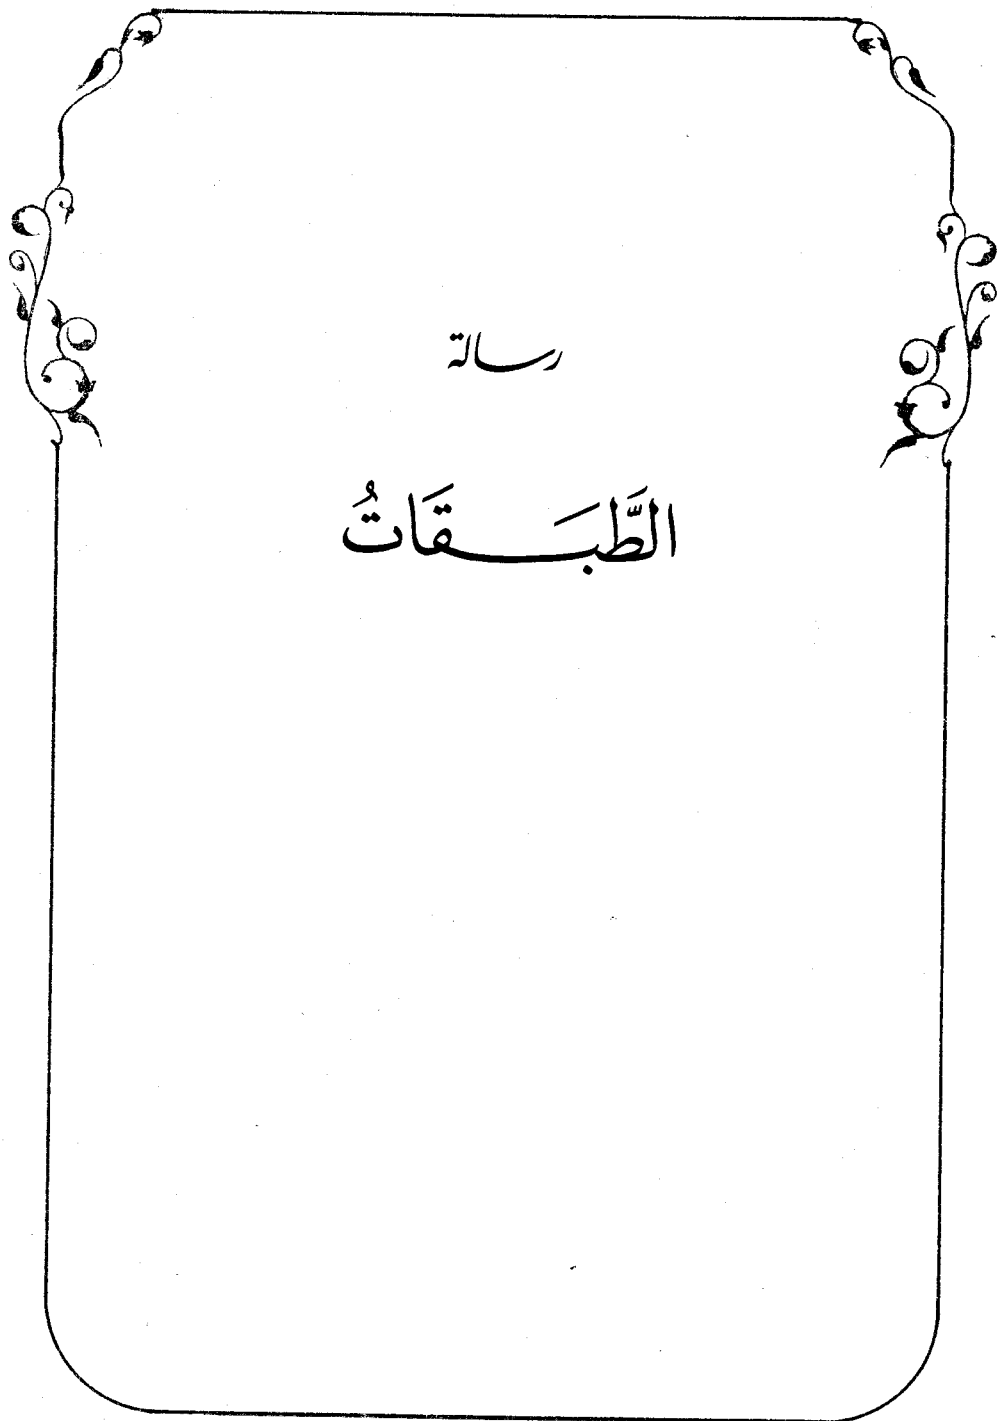 رسالة
الطَّبَقَاتُ